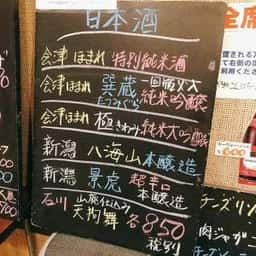 日本酒
会津ほまれ 特別純米酒
会津ほまれ 巽蔵 一回火入
たつみぐら 純米吟醸
会津ほまれ 極 きわみ 純米大吟醸
新潟 八海山 本醸造
新潟 景虎 超辛口
本醸造
石川 山廃仕込み
天狗舞 各850
税別
全席
ご利用くださ
600
チーズリン
肉じゃが